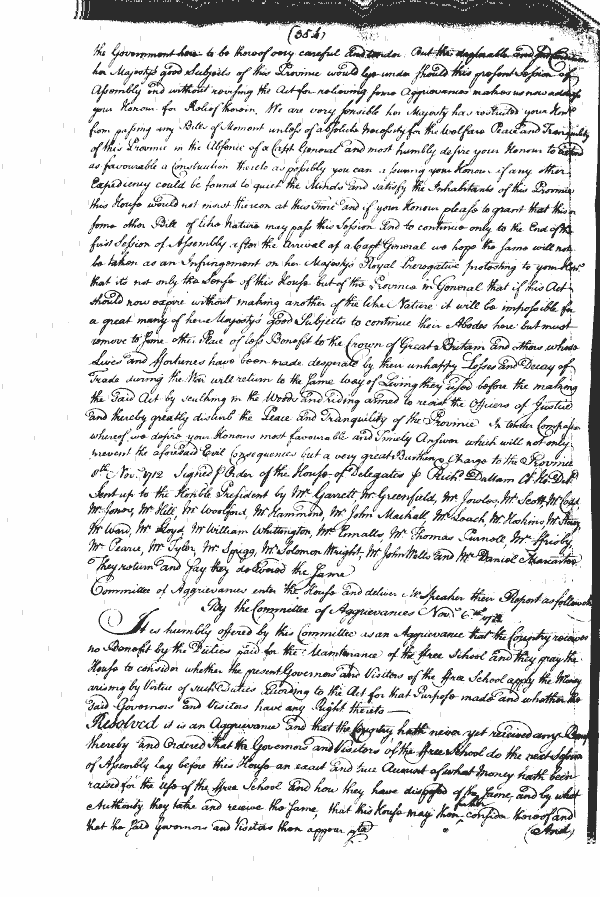 (354)
the Government here to be thereof very careful and tender. But the deplorable and
her Majestys good Subjects of this Province would lye under should this present Session of
Assembly end without reviving the Act for relieving some Aggrievances makes us now address
your Honour for Relief therein. We are very sensible her Majesty has restricted your Honr
from passing any Bills of Moment unless of absolute necessity for the Welfare Peace and Tranquility
of this Province in the Absence of a Capt General and most humbly desire your Honour to
as favourable a Construction thereto as possibly you can assuring your Honour if any other
Expediency could be found to quiet the Minds and satisfy the Inhabitants of this Province
this House would not insist thereon at this time and if your Honour please to grant that this or
some other Bill of like Nature may pass this Session and to continue only to the End of the
first Session of Assembly after the Arrival of a Capt General we hope the same will not
be taken as an Infringement on her Majestys Royal Prerogative protesting to your Honr
that its not only the Sense of this House but of the Province in General that if this Act
should now expire without making another of the like Nature it will be impossible for
a great many of her Majestys good Subjects to continue their Abodes here but must
remove to some other Place of less Benefit to the Crown of Great Britain and others whose
Lives and Fortunes have been made desperate by their unhappy Losses and Decay of
Trade during the War will return to the same way of Living they used before the making
the said Act by sculking in the Woods and riding armed to resist the Officers of Justice
and thereby greatly disturb the Peace and Tranquility of the Province In tender Compassion
whereof we desire your Honours most favourable and timely Answer which will not only
prevent the aforesaid Evil Consequences but a very great Burthen & Charge to the Province
8th Novr 1712 Signed p Order of the House of Delegates p Richd Dallam Cl. Ho. Del.
Sent up to the Honble President by Mr Garrett, Mr Greenfield, Mr Jowles, Mr Scott, Mr
Mr Jones, Mr Hill, Mr Woolford, Mr Hammond, Mr John Mackall, Mr Leach, Mr Hoskins, Mr
Mr Ward, Mr Lloyd, Mr William Whittington, Mr Ennalls, Mr Thomas Purnell, Mr Frisby
Mr Pearce, Mr Tyler, Mr Sprigg, Mr Solomon Wright, Mr John Wells and Mr Daniel Mariartee
They return and say they delivered the same
Committee of Aggrievances enter the House and deliver Mr Speaker their Report as follows
By the Committee of Aggrievances Novr 6th 1712
It is humbly offered by this Committee as an Aggrievance that the Country receives
no Benefit by the Duties paid for the Maintenance of the free School and they pray the
House to consider whether the present Governors and Visitors of the free School apply the Money
arising by Virtue of such Duties According to the Act for that Purpose made and whether the
said Governors and Visitors have any Right thereto
Resolved it is an Aggrievance and that the Country hath never yet received any
thereby and Ordered that the Governors and Visitors of the free School do the next Session
of Assembly lay before this House an exact and true Account of what Money hath been
raised for the use of the free School and how they have disposed of the same, and by what
Authority they take and receive the same, that this House may then further consider thereof and
that the said Governors and Visitors then appear
(And)